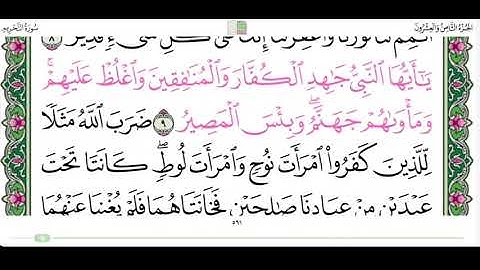 الجزء الثامن والعشرون
سورة التحريم
أَتْمِمْ لَنَا نُورَنَا وَاغْفِرْ لَنَا إِنَّكَ عَلَىٰ كُلِّ شَيْءٍ قَدِيرٌ ٨
يَٰٓأَيُّهَا النَّبِيُّ جَٰهِدِ الْكُفَّارَ وَالْمُنَٰفِقِينَ وَاغْلُظْ عَلَيْهِمْ ۚ
وَمَأْوَىٰهُمْ جَهَنَّمُ ۖ وَبِئْسَ الْمَصِيرُ ٩ ضَرَبَ اللَّهُ مَثَلًا
لِّلَّذِينَ كَفَرُوا امْرَأَتَ نُوحٍ وَامْرَأَتَ لُوطٍ ۖ كَانَتَا تَحْتَ
عَبْدَيْنِ مِنْ عِبَادِنَا صَٰلِحَيْنِ فَخَانَتَاهُمَا فَلَمْ يُغْنِيَا عَنْهُمَا
٥٦١